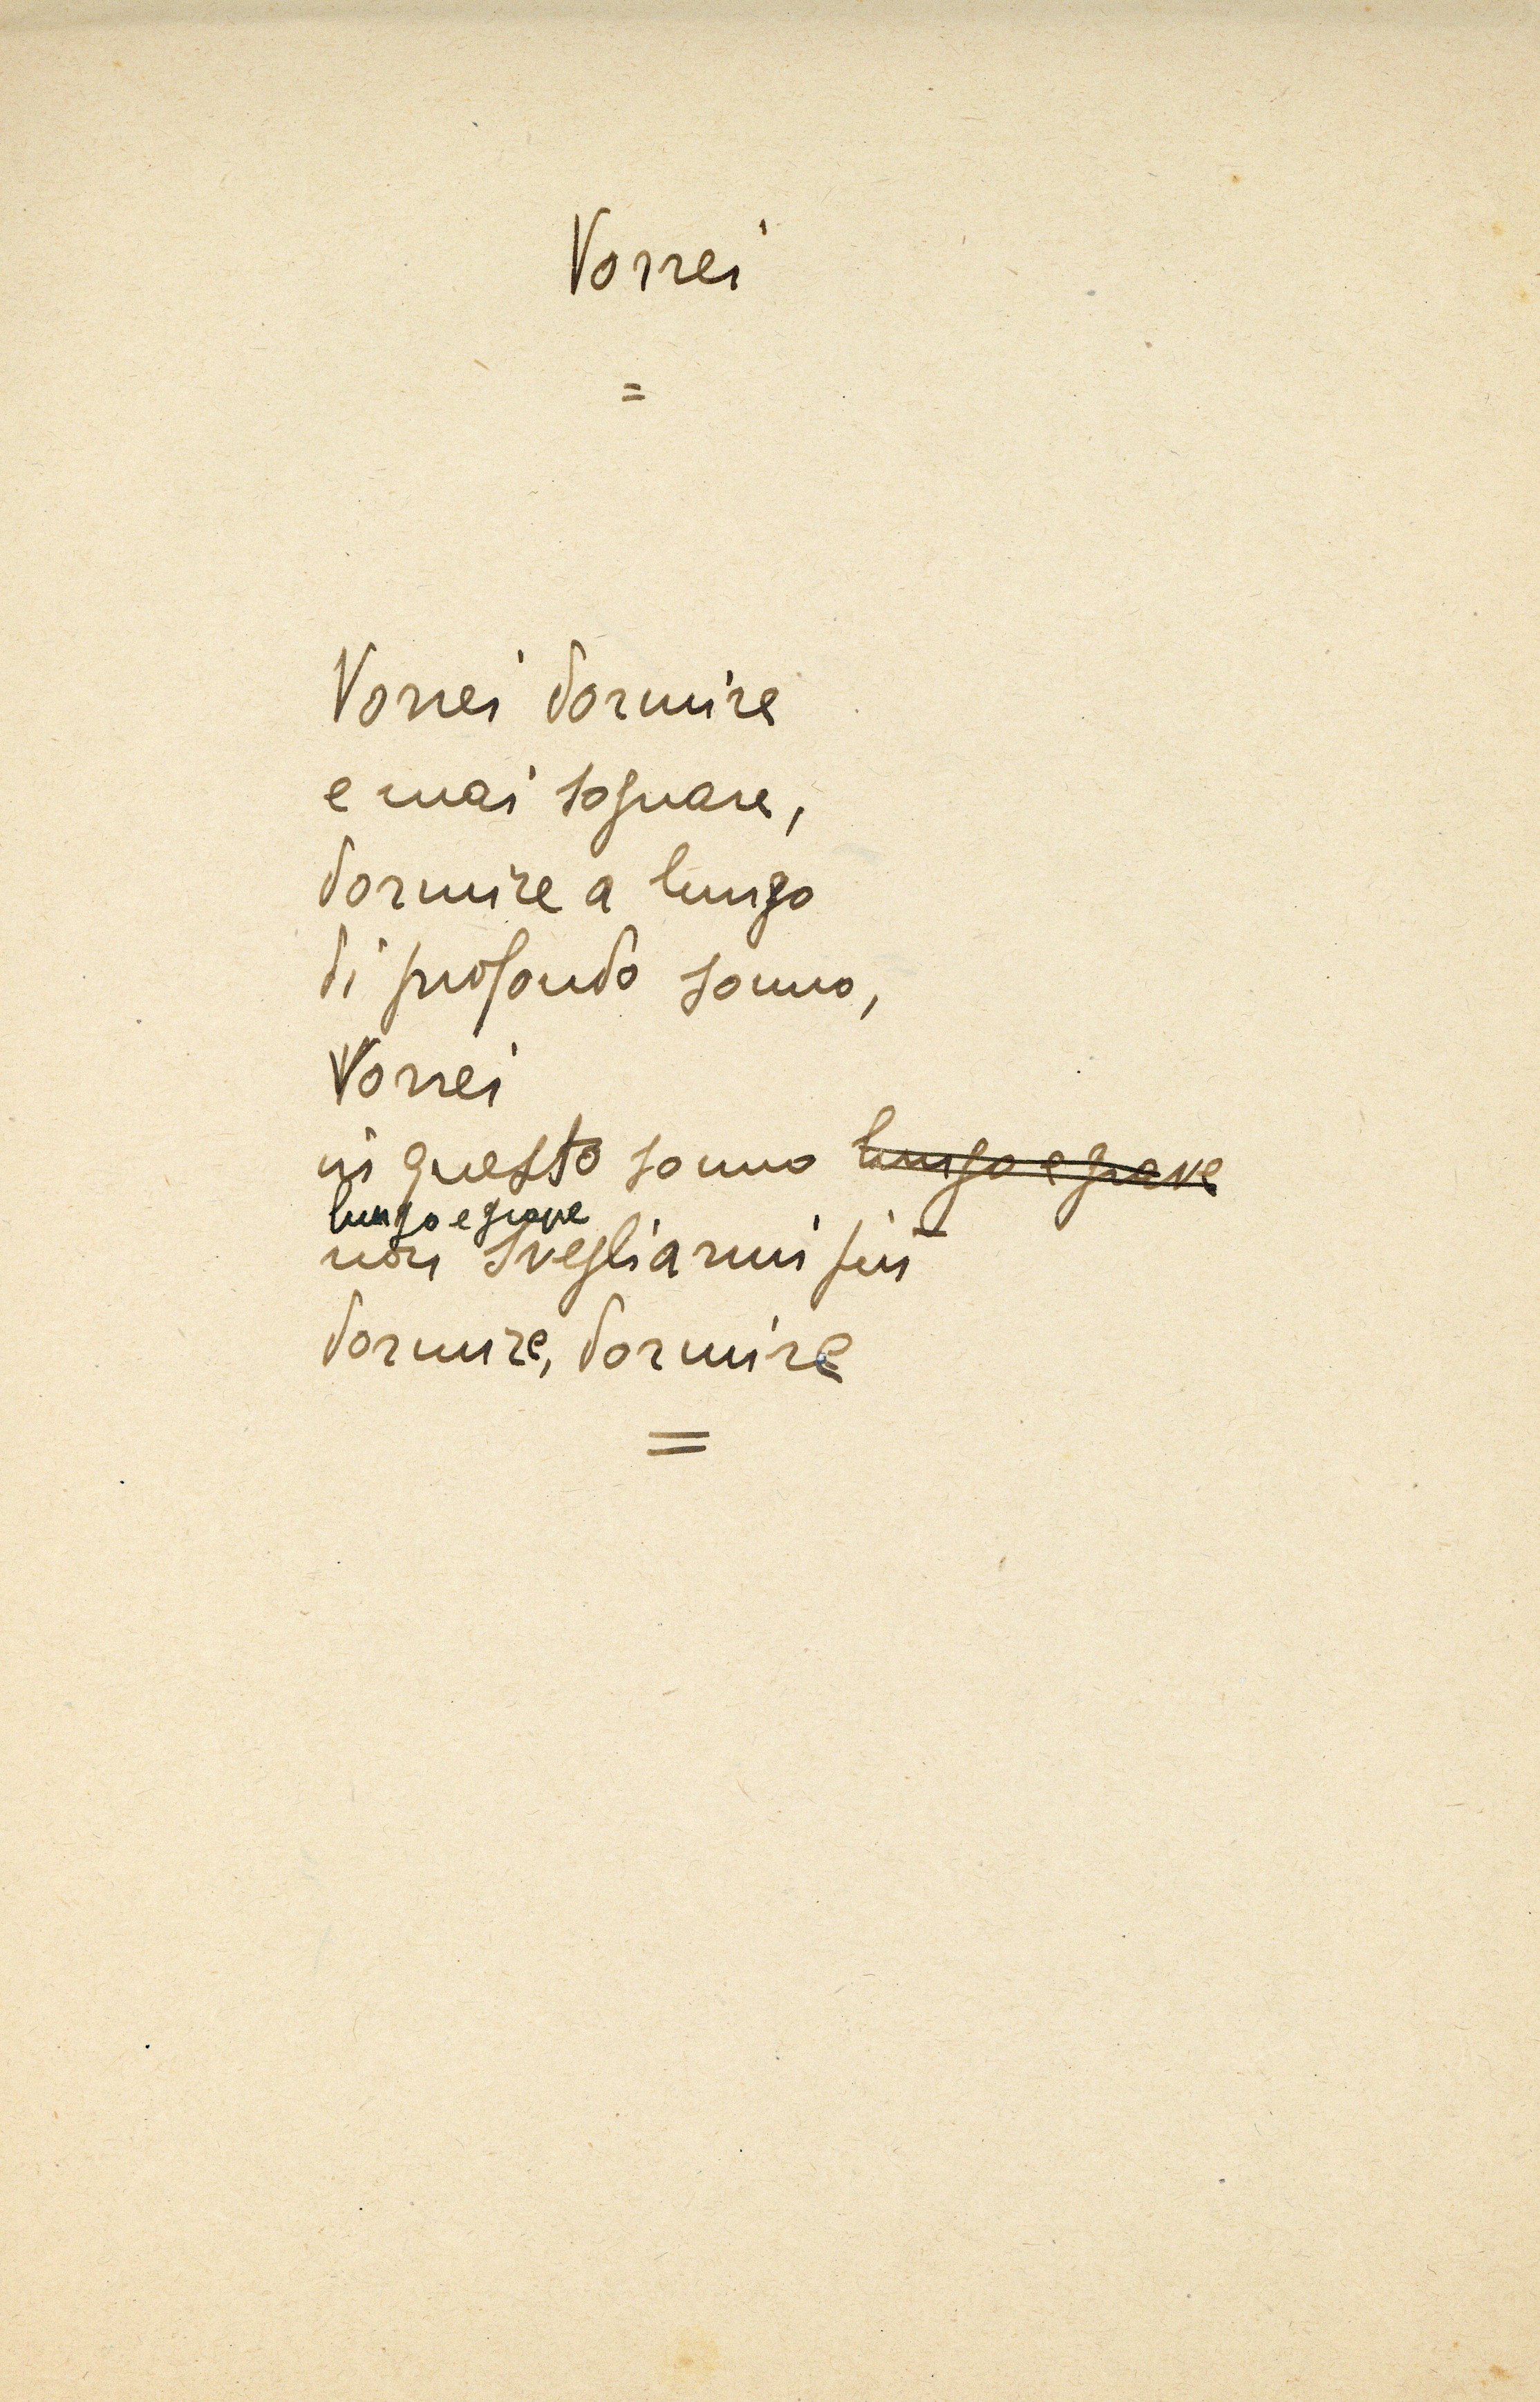 Vorrei
=
Vorrei dormire
e mai sognare,
dormire a lungo
di profondo sonno,
Vorrei
in questo sonno lungo e grave
lungo e grave
non svegliarmi più
dormire, dormire
=